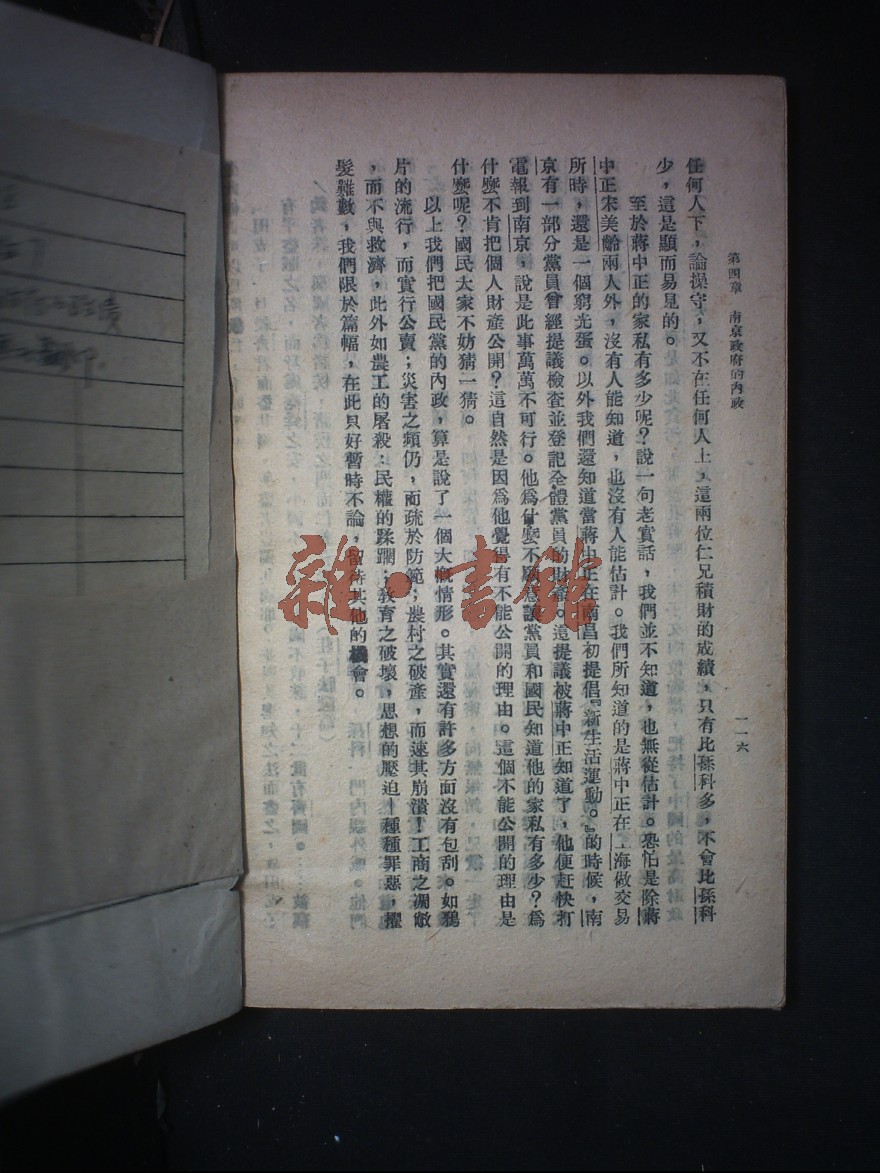 第四章　南京政府的內政
一一六
任何人下，論操守，又不在任何人上，這兩位仁兄積財的成績，只有比孫科多，不會比孫科
少，這是顯而易見的。
至於蔣中正的家私有多少呢？說一句老實話，我們並不知道，也無從估計。恐怕是除蔣
中正宋美齡兩人外，沒有人能知道，也沒有人能估計。我們所知道的是蔣中正在上海做交易
所時，還是一個窮光蛋。以外我們還知道當蔣中正在南昌初提倡『新生活運動。』的時候，南
京有一部分黨員曾經提議檢查並登記全體黨員的財產。這提議被蔣中正知道了，他便赶快打
電報到南京，說是此事萬萬不可行。他爲什麼不願意讓黨員和國民知道他的家私有多少？爲
什麼不肯把個人財產公開？這自然是因爲他覺得有不能公開的理由。這個不能公開的理由是
什麼呢？國民大家不妨猜一猜。
以上我們把國民黨的內政，算是說了一個大概情形。其實還有許多方面沒有包刮。如鴉
片的流行，而實行公賣；災害之頻仍，而疏於防範；農村之破產，而速其崩潰！工商之凋敝
，而不與救濟，此外如農工的屠殺：民權的蹂躪；教育之破壞，思想的壓迫，種種罪惡，擢
髮難數，我們限於篇幅，在此只好暫時不論，留待其他的機會。
雜·書館